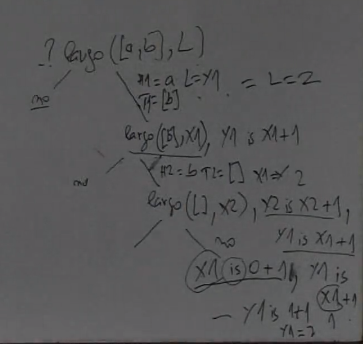 ? largo([a,b],L)
H1=a L=Y1 = L=2
T1=[b]
no
largo([b],X1), Y1 is X1+1
no
H2=b T2=[] X1=Y2
largo([],X2), Y2 is X2+1,
Y1 is X1+1
no
X1 is 0+1, Y1 is
X1+1
Y1 is 1+1 1
Y1=3